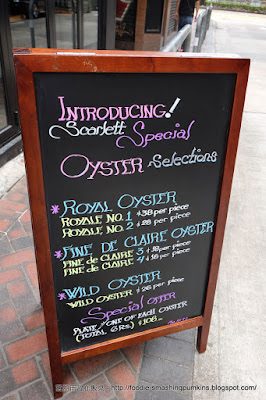 INTRODUCING!
Scarlett Special
OYSTER Selections
* ROYAL OYSTER
ROYALE NO. 1 $38 per piece
ROYALE NO. 2 $28 per piece
* FINE DE CLAIRE OYSTER
FINE de CLAIRE 3 $18 per piece
FINE de CLAIRE 4 $16 per piece
* WILD OYSTER
WILD OYSTER $26 per piece
Special OFFER
PLATE / ONE OF EACH OYSTER
(TOTAL 6 Rs.) $108
http://foodie-smashingpumkins.blogspot.com/